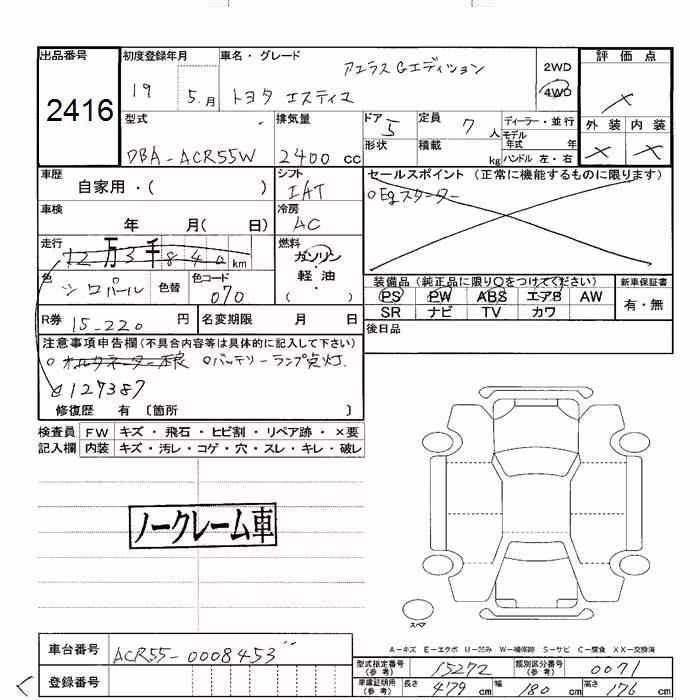 出品番号 初度登録年月 車名・グレード 評価点
2416 19 5.月 アエラスGエディション トヨタ エスティマ 2WD 4WD ×
型式 排気量 ドア 定員 ディーラー・並行 外装 内装
DBA-ACR55W 2400 cc 5 7 人 モデル年式 年 × ×
形状 積載 kg ハンドル 左・右
車歴 シフト セールスポイント (正常に機能するものに限ります)
自家用・( ) IAT ○Egスターター
車検 冷房
年 月( 日) AC
走行 燃料
12万3千840km ガソリン
色 色替 色コード 軽・油 装備品 (純正品に限り○をつけてください) 新車保証書
シロパール 070 ( ) PS PW ABS エアB AW 有・無
SR ナビ TV カワ
R券 15-220 円 名変期限 月 日 後日品
注意事項申告欄(不具合内容等は具体的に記入して下さい)
○オルタネーター不良 ○バッテリーランプ点灯.
127387
修復歴 有 〔箇所 〕
検査員 FW キズ・飛石・ヒビ割・リペア跡・×要
記入欄 内装 キズ・汚レ・コゲ・穴・スレ・キレ・破レ
ノークレーム車
スペア
A-キズ E-エクボ U-凹み W-補修跡 S-サビ C-腐食 XX-交換済
車台番号 ACR55-0008453
型式指定番号(参考) 15272 類別区分番号(参考) 0071
登録番号 車庫証明用(参考) 長さ 479 cm 幅 180 cm 高さ 176 cm